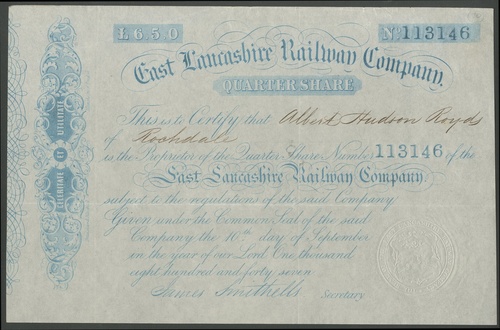 £6.5.0 No. 113146
East Lancashire Railway Company.
QUARTER SHARE
This is to Certify that Albert Hudson Royds
of Rochdale
is the Proprietor of the Quarter Share Number 113146 of the
East Lancashire Railway Company
subject to the regulations of the said Company
Given under the Common Seal of the said
Company the 10th day of September
in the year of our Lord One thousand
eight hundred and forty seven
James Smithells Secretary
CELERITATE ET UTILITATE